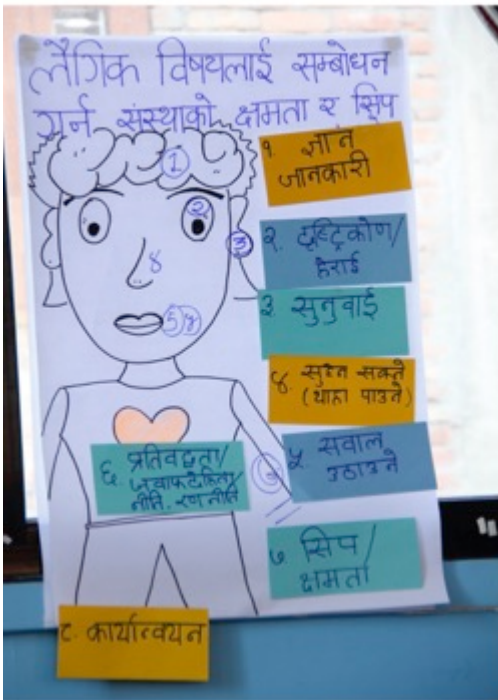 लैगिक विषयलाई सम्बोधन
गर्न संस्थाको क्षमता र सिप
१. ज्ञान
जानकारी
1
2
२. दृष्ट्रिकोण/
हेराई
3
३ सुनुवाई
४
5
४. सुहन सक्ने
(थाहा पाउने)
५. सवाल
उठाउने
६. प्रतिवद्धता/
जवाफदेहिता/
नीति. रणनीति
७ सिप/
क्षमता
८. कार्यान्वयन